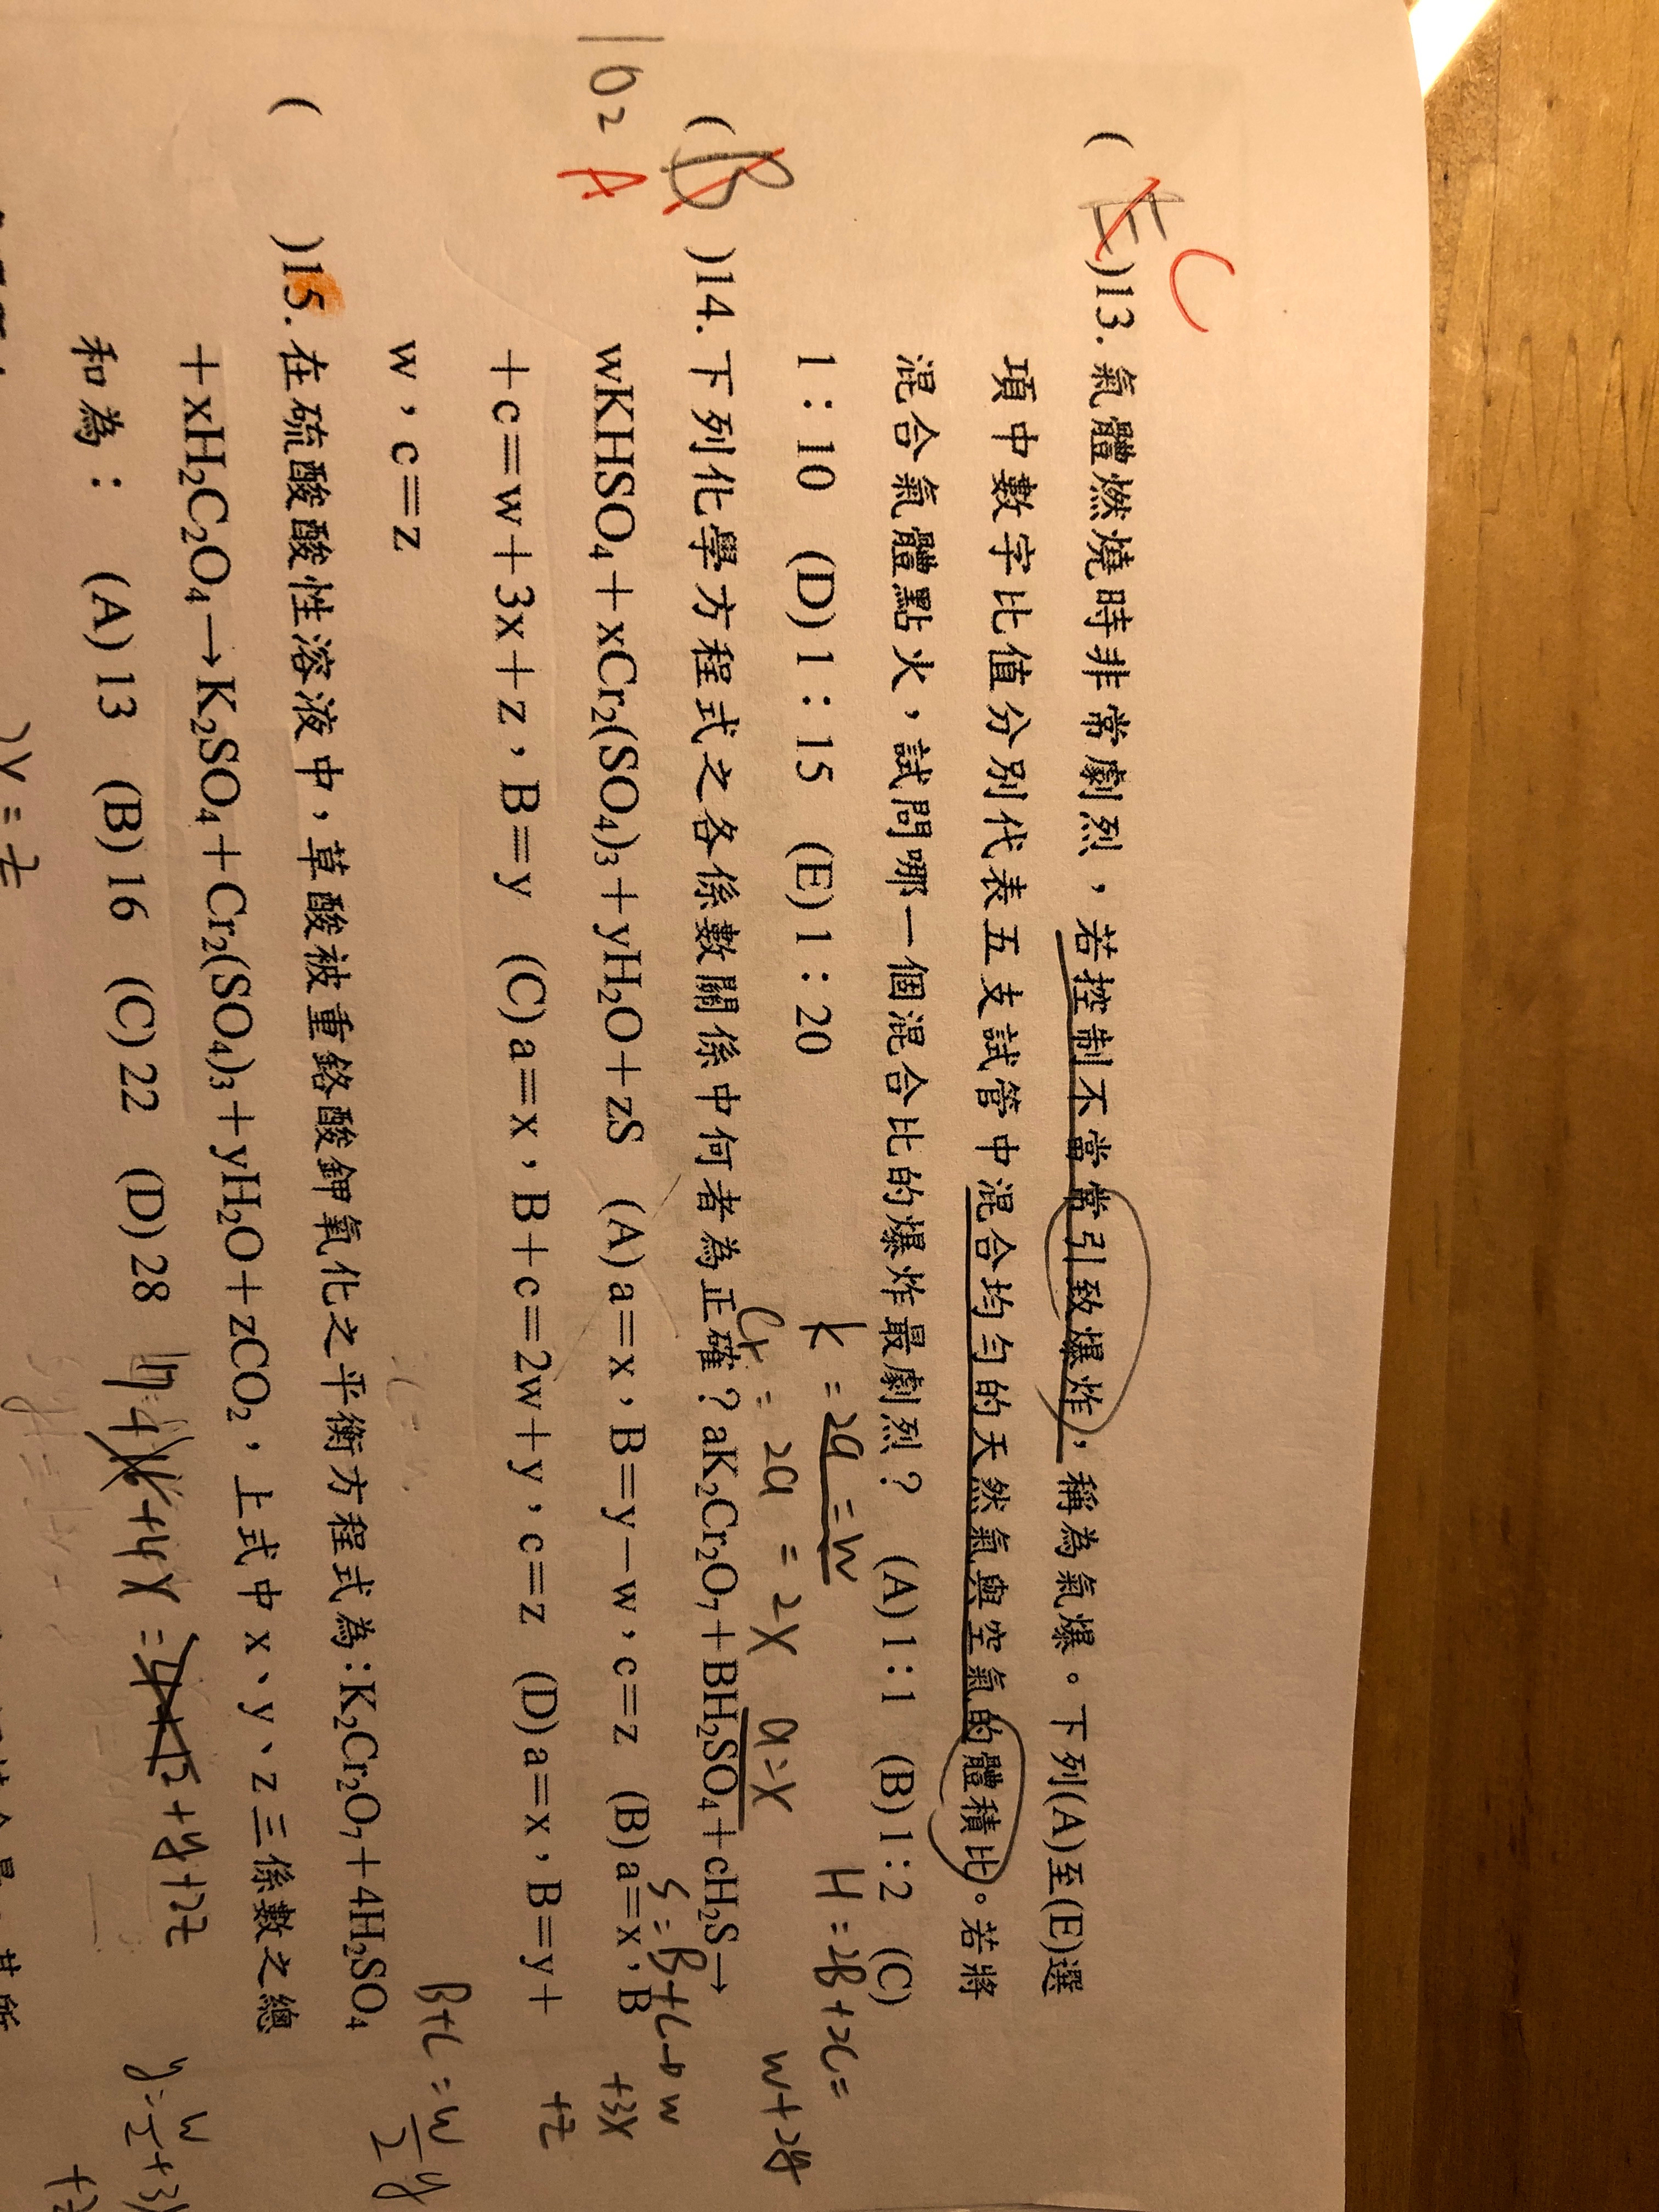 C
( E )13. 氣體燃燒時非常劇烈，若控制不當常引致爆炸，稱為氣爆。下列(A)至(E)選
項中數字比值分別代表五支試管中混合均勻的天然氣與空氣的體積比。若將
混合氣體點火，試問哪一個混合比的爆炸最劇烈？ (A) 1：1 (B) 1：2 (C)
1：10 (D) 1：15 (E) 1：20
K = 2a = w
H = 2B + 2c =
w + 2y
Cr = 2a = 2x a = x
( B )14. 下列化學方程式之各係數關係中何者為正確？aK₂Cr₂O₇＋BH₂SO₄＋cH₂S→
A
wKHSO₄＋xCr₂(SO₄)₃＋yH₂O＋zS (A) a＝x，B＝y－w，c＝z (B) a＝x，B
S = B + C → w
+3x
+z
＋c＝w＋3x＋z，B＝y (C) a＝x，B＋c＝2w＋y，c＝z (D) a＝x，B＝y＋
w，c＝z
B+C =
( )15. 在硫酸酸性溶液中，草酸被重鉻酸鉀氧化之平衡方程式為：K₂Cr₂O₇＋4H₂SO₄
＋xH₂C₂O₄→K₂SO₄＋Cr₂(SO₄)₃＋yH₂O＋zCO₂，上式中 x、y、z 三係數之總
和為： (A) 13 (B) 16 (C) 22 (D) 28
102